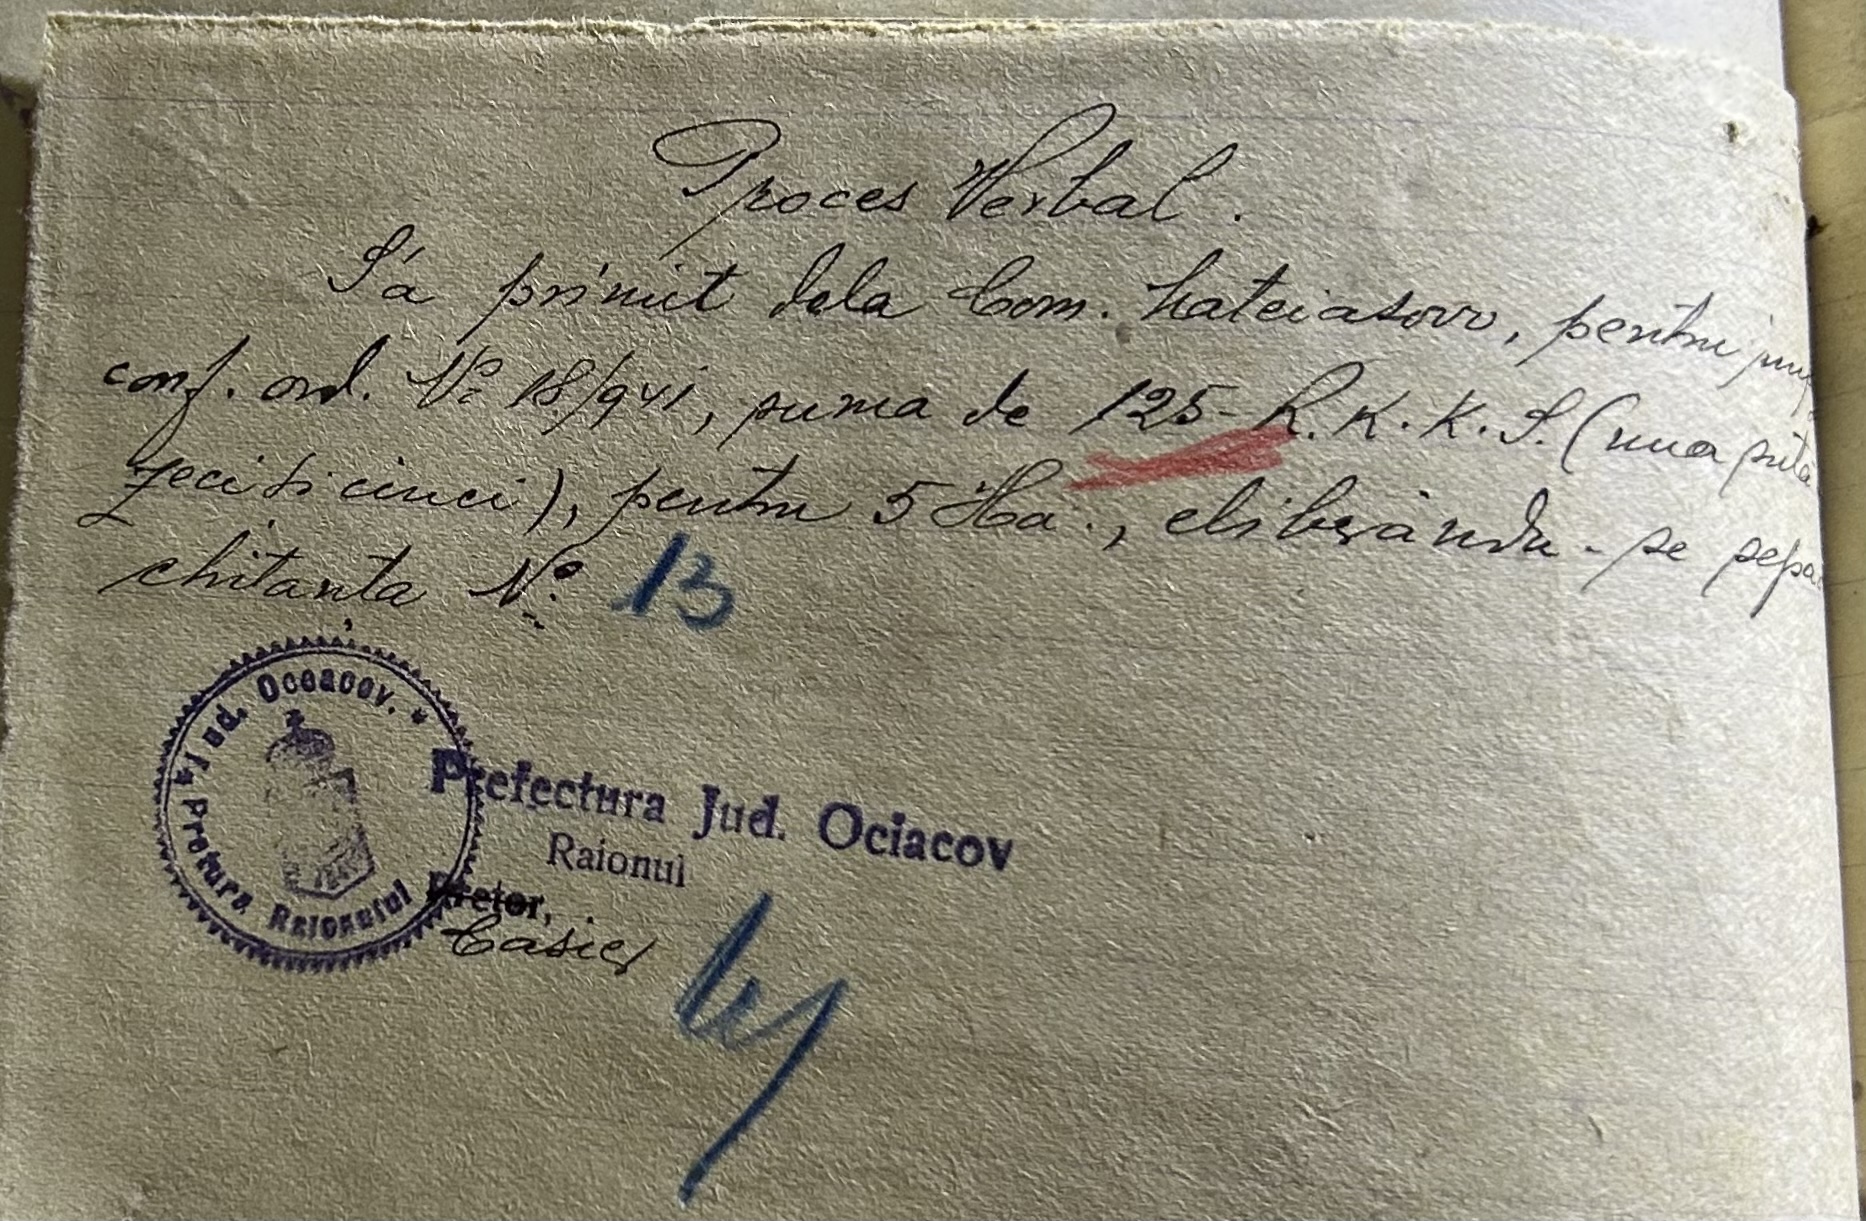 Proces Verbal.
S'a primit dela Com. Kateiasovo, pentru
conf. ord. No 18/941, suma de 125- R.K.K.S. (una suta
zeci si cinci), pentru 5 Ha., eliberându-se separ
chitanța No. 13
Jud. Oceacov. * Pretura Raionului *
Prefectura Jud. Ociacov
Raionul
Pretor,
Casier